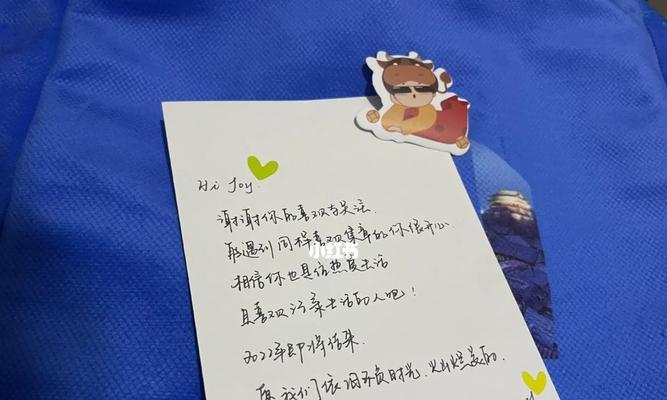 Hi Joy.
谢谢你的喜欢与关注.
能遇到同样喜欢集章的你很开心
小红书
相信你也是位热爱生活
且喜欢记录生活的人吧!
2022年即将结束.
愿我们依旧不负时光,灿烂美好.